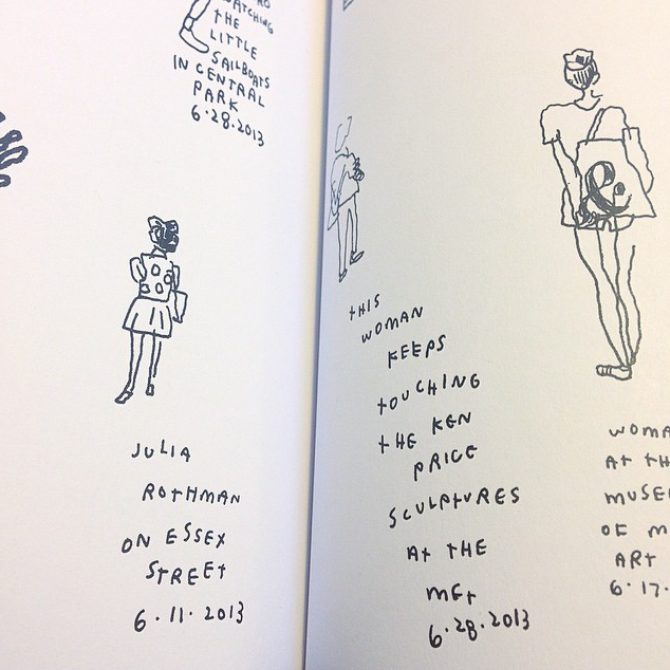 WATCHING
THE
LITTLE
SAILBOATS
IN CENTRAL
PARK
6.28.2013
JULIA
ROTHMAN
ON ESSEX
STREET
6.11.2013
THIS
WOMAN
KEEPS
TOUCHING
THE KEN
PRICE
SCULPTURES
AT THE
MET
6.28.2013
WOMA
AT TH
MUSE
OF M
ART
6.17.